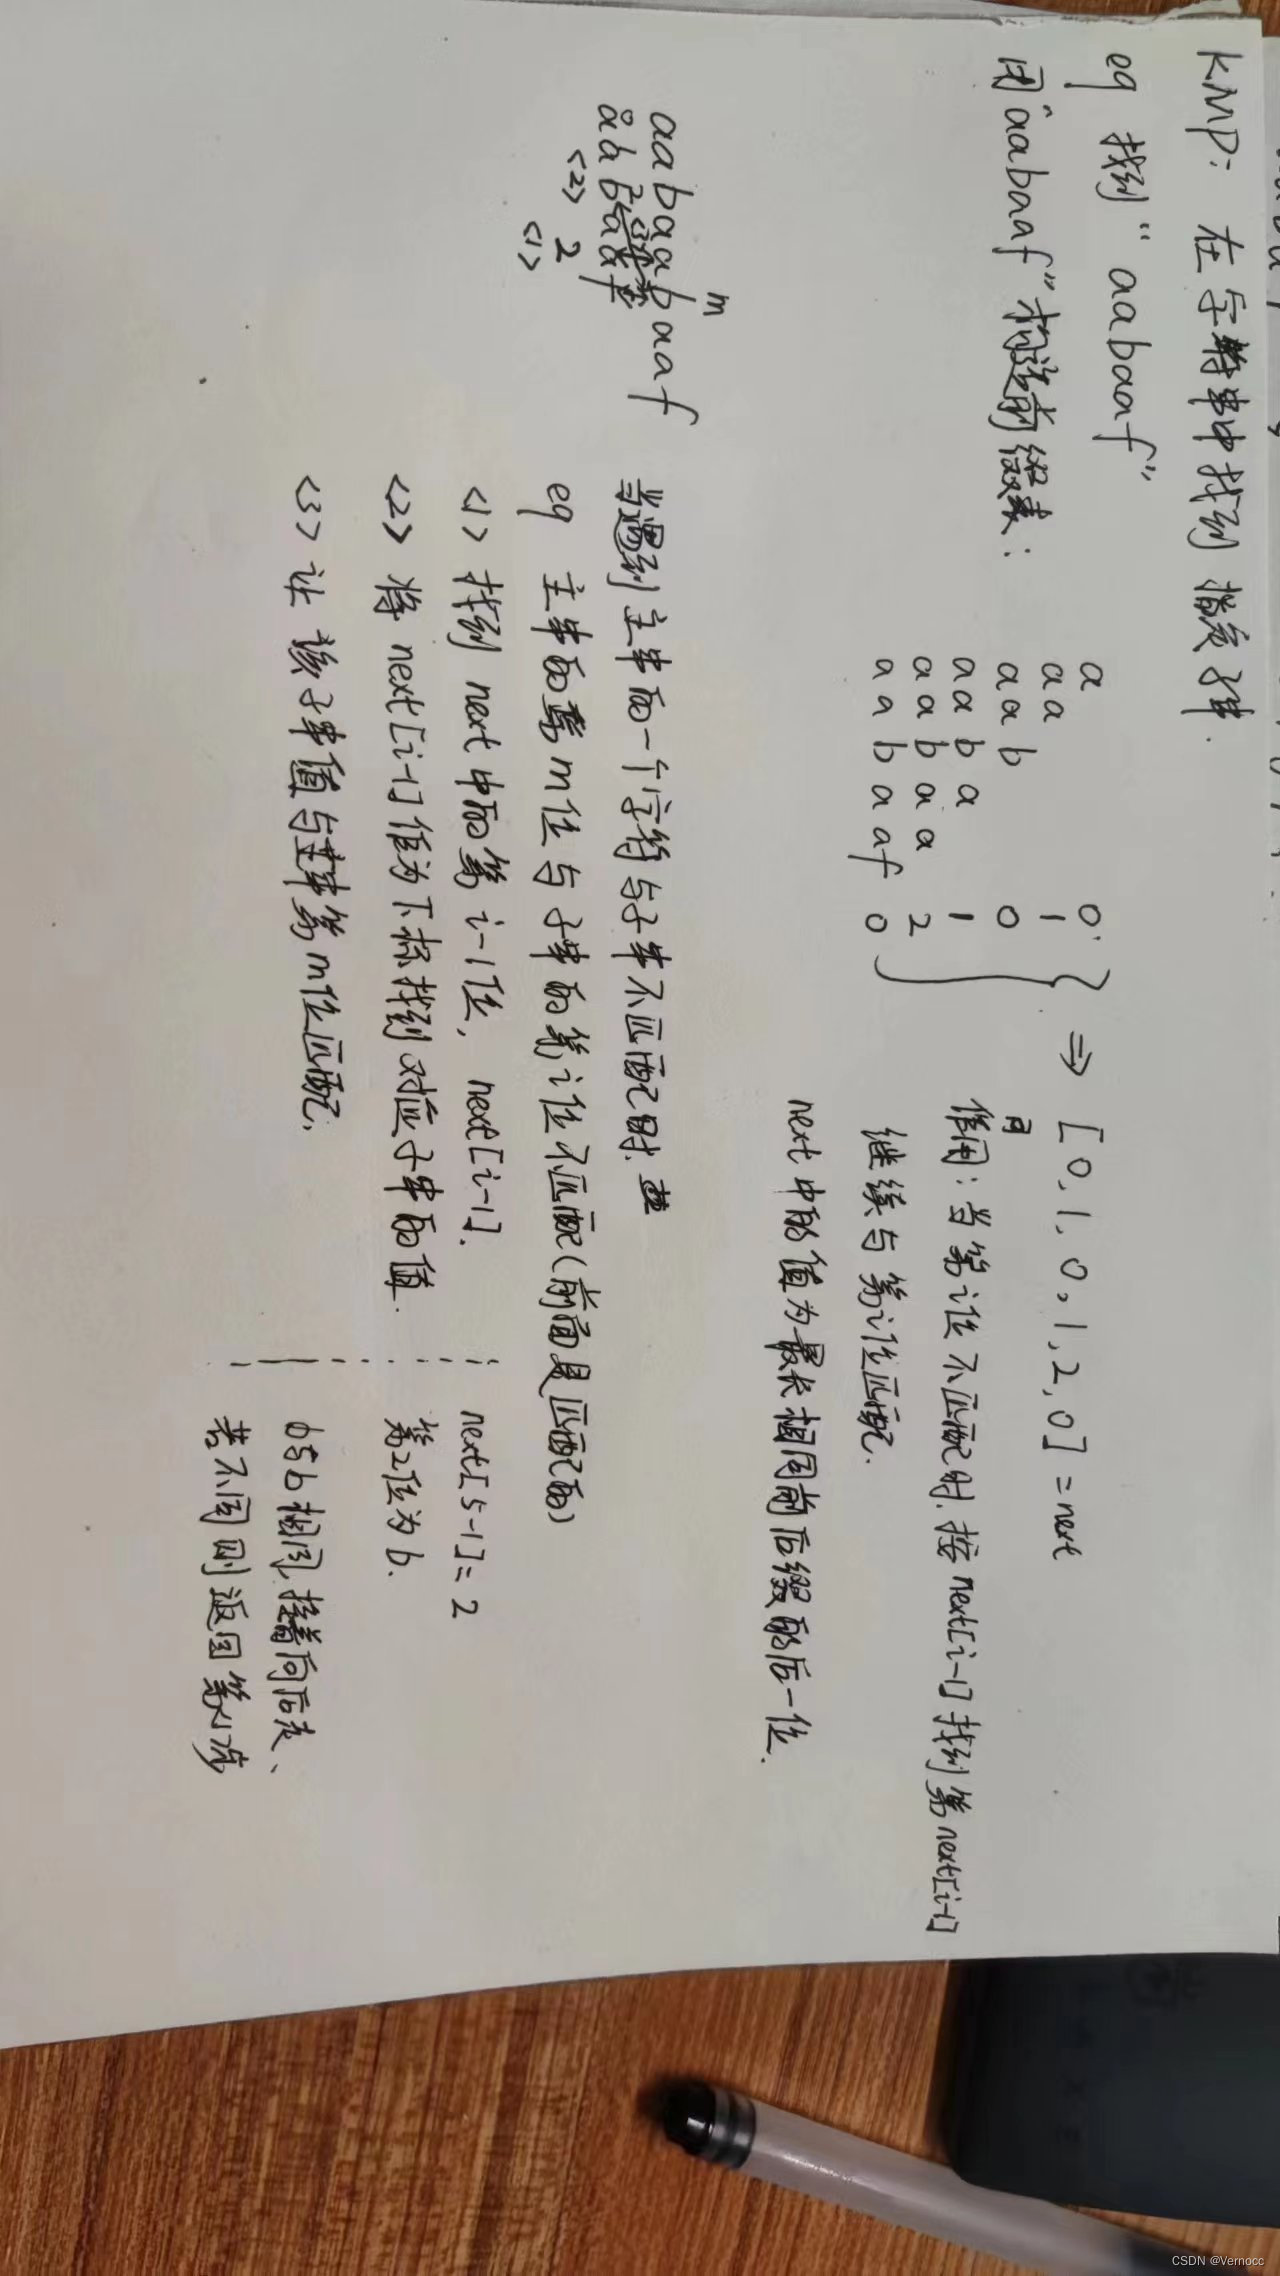 KMP: 在字符串中找到指定子串.
eg 找到“aabaaf”
用“aabaaf”构造前缀表:
a 0
aa 1
aab 0
aaba 1
aabaa 2
aabaaf 0
⇒ [0,1,0,1,2,0] = next
作用: 当第i位不匹配时, 按next[i-1]找到第next[i-1]
继续与第i位匹配.
next中的值为最长相同前后缀的后一位.
m
aabaabaaf
aabaaf
<2> 2
<1>
当遇到主串的一个字符与子串不匹配时.
eg 主串的第m位与子串的第i位不匹配(前面是匹配的)
<1> 找到next中的第i-1位, next[i-1]. next[5-1]=2
<2> 将next[i-1]作为下标找到对应子串的值. 第2位为b.
<3> 让该子串值与主串第m位匹配. b与b相同, 接着向后走、
若不同则返回第1步
CSDN @Vernocc